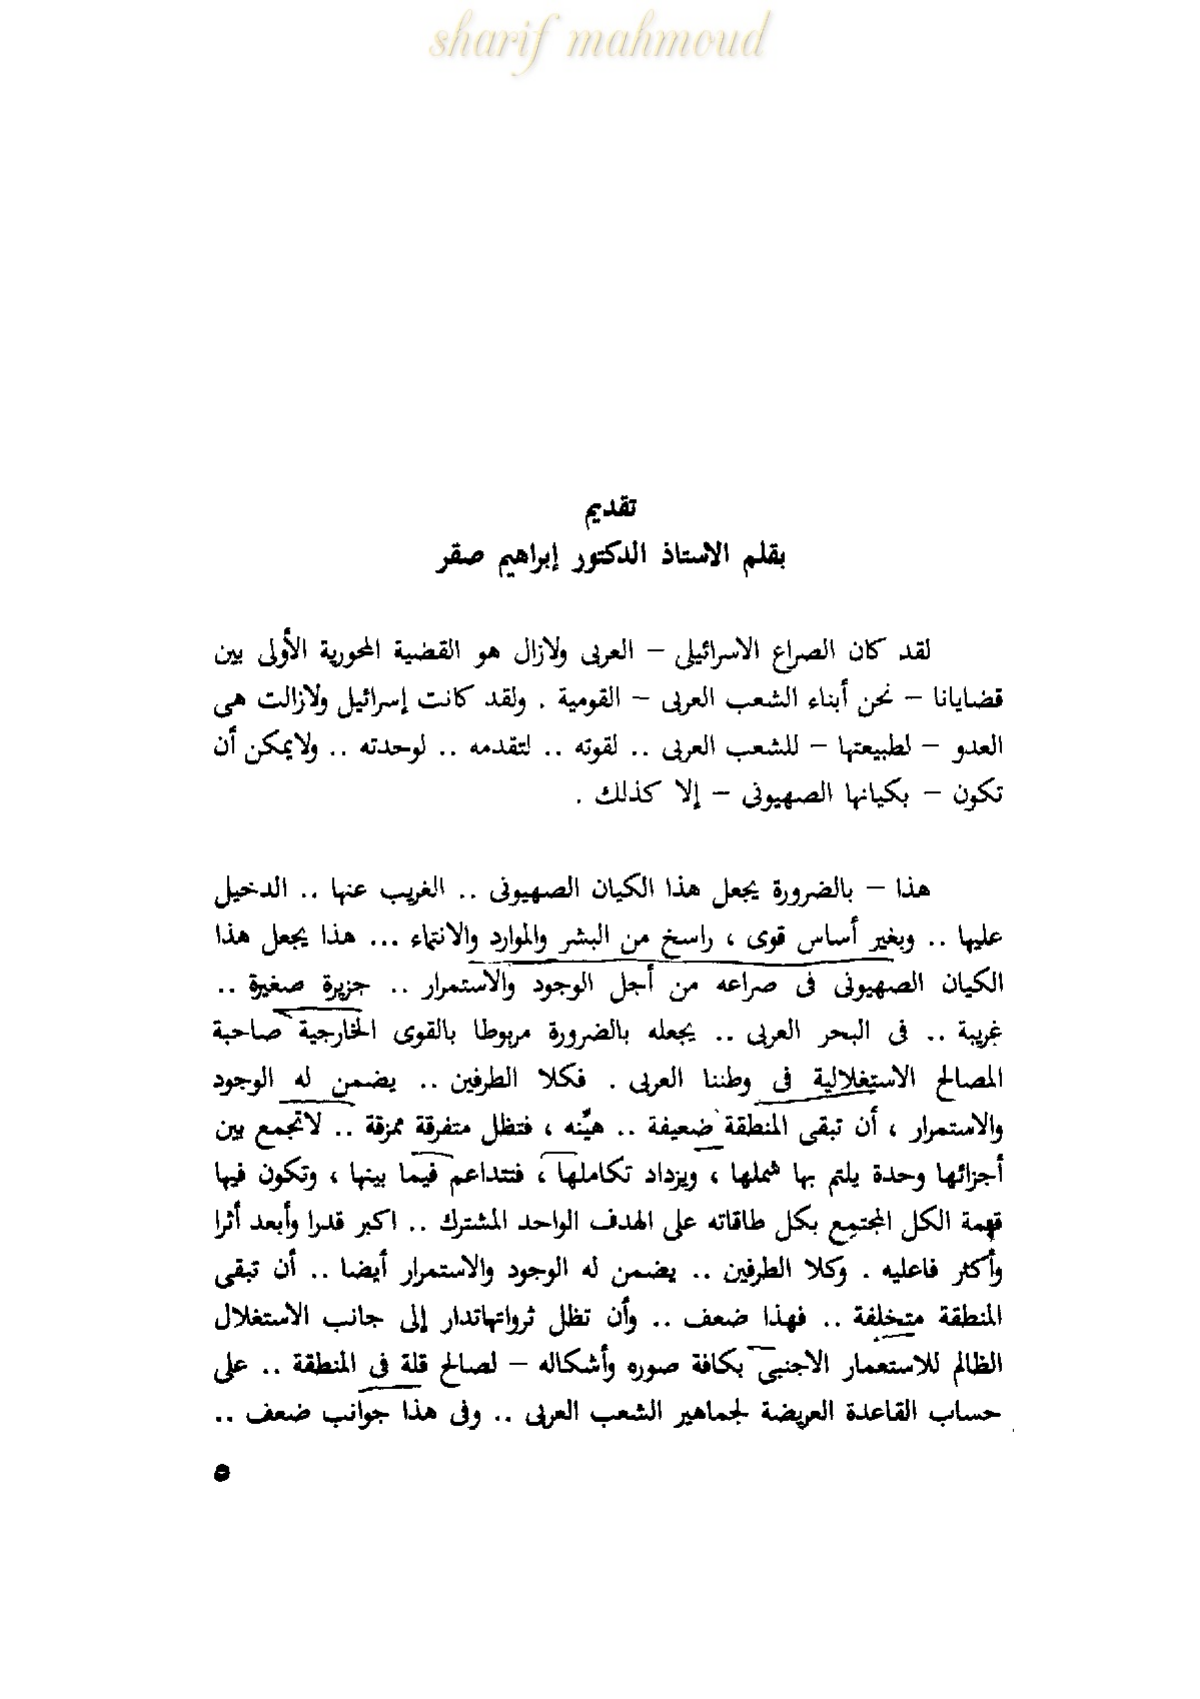 sharif mahmoud
تقديم
بقلم الاستاذ الدكتور إبراهيم صقر
لقد كان الصراع الاسرائيلى – العربى ولازال هو القضية المحورية الأولى بين
قضايانا – نحن أبناء الشعب العربى – القومية . ولقد كانت إسرائيل ولازالت هى
العدو – لطبيعتها – للشعب العربى .. لقوته .. لتقدمه .. لوحدته .. ولايمكن أن
تكون – بكيانها الصهيونى – إلا كذلك .
هذا – بالضرورة يجعل هذا الكيان الصهيونى .. الغريب عنها .. الدخيل
عليها .. وبغير أساس قوى ، راسخ من البشر والموارد والانتماء ... هذا يجعل هذا
الكيان الصهيونى فى صراعه من أجل الوجود والاستمرار .. جزيرة صغيرة ..
غريبة .. فى البحر العربى .. يجعله بالضرورة مربوطا بالقوى الخارجية صاحبة
المصالح الاستغلالية فى وطننا العربى . فكلا الطرفين .. يضمن له الوجود
والاستمرار ، أن تبقى المنطقة ضعيفة .. هيِّنه ، فتظل متفرقة ممزقة .. لاتجمع بين
أجزائها وحدة يلتم بها شملها ، ويزداد تكاملها ، فتتداعم فيما بينها ، وتكون فيها
قيمة الكل المجتمع بكل طاقاته على الهدف الواحد المشترك .. اكبر قدرا وأبعد أثرا
وأكثر فاعليه . وكلا الطرفين .. يضمن له الوجود والاستمرار أيضا .. أن تبقى
المنطقة متخلفة .. فهذا ضعف .. وأن تظل ثرواتهاتدار إلى جانب الاستغلال
الظالم للاستعمار الاجنبى بكافة صوره وأشكاله – لصالح قلة فى المنطقة .. على
حساب القاعدة العريضة لجماهير الشعب العربى .. وفى هذا جوانب ضعف ..
٥